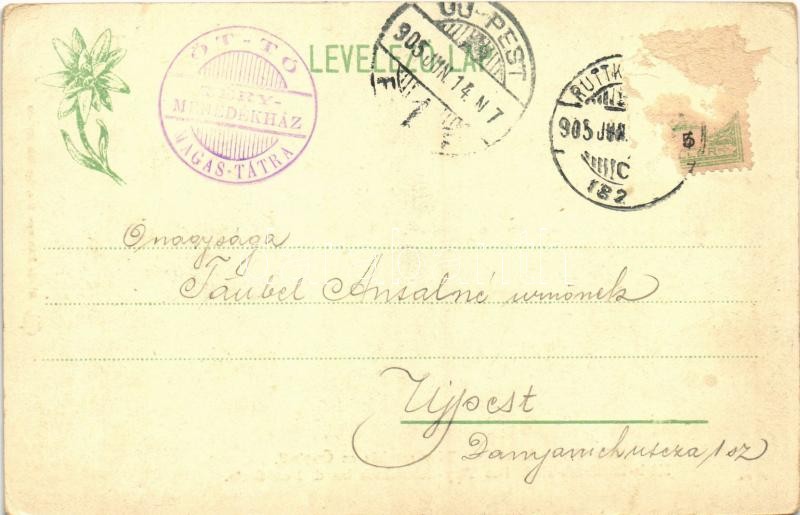 ÖT-TÓ
TÉRY-
MENEDÉKHÁZ
MAGAS-TÁTRA
LEVELEZŐ LAP
ÚJ-PEST
905 JUN. 14. N 7
1
RUTTK
905 JUN.
5
C
182
Őnagysága
Täubel Ansalné urnőnek
Ujpest